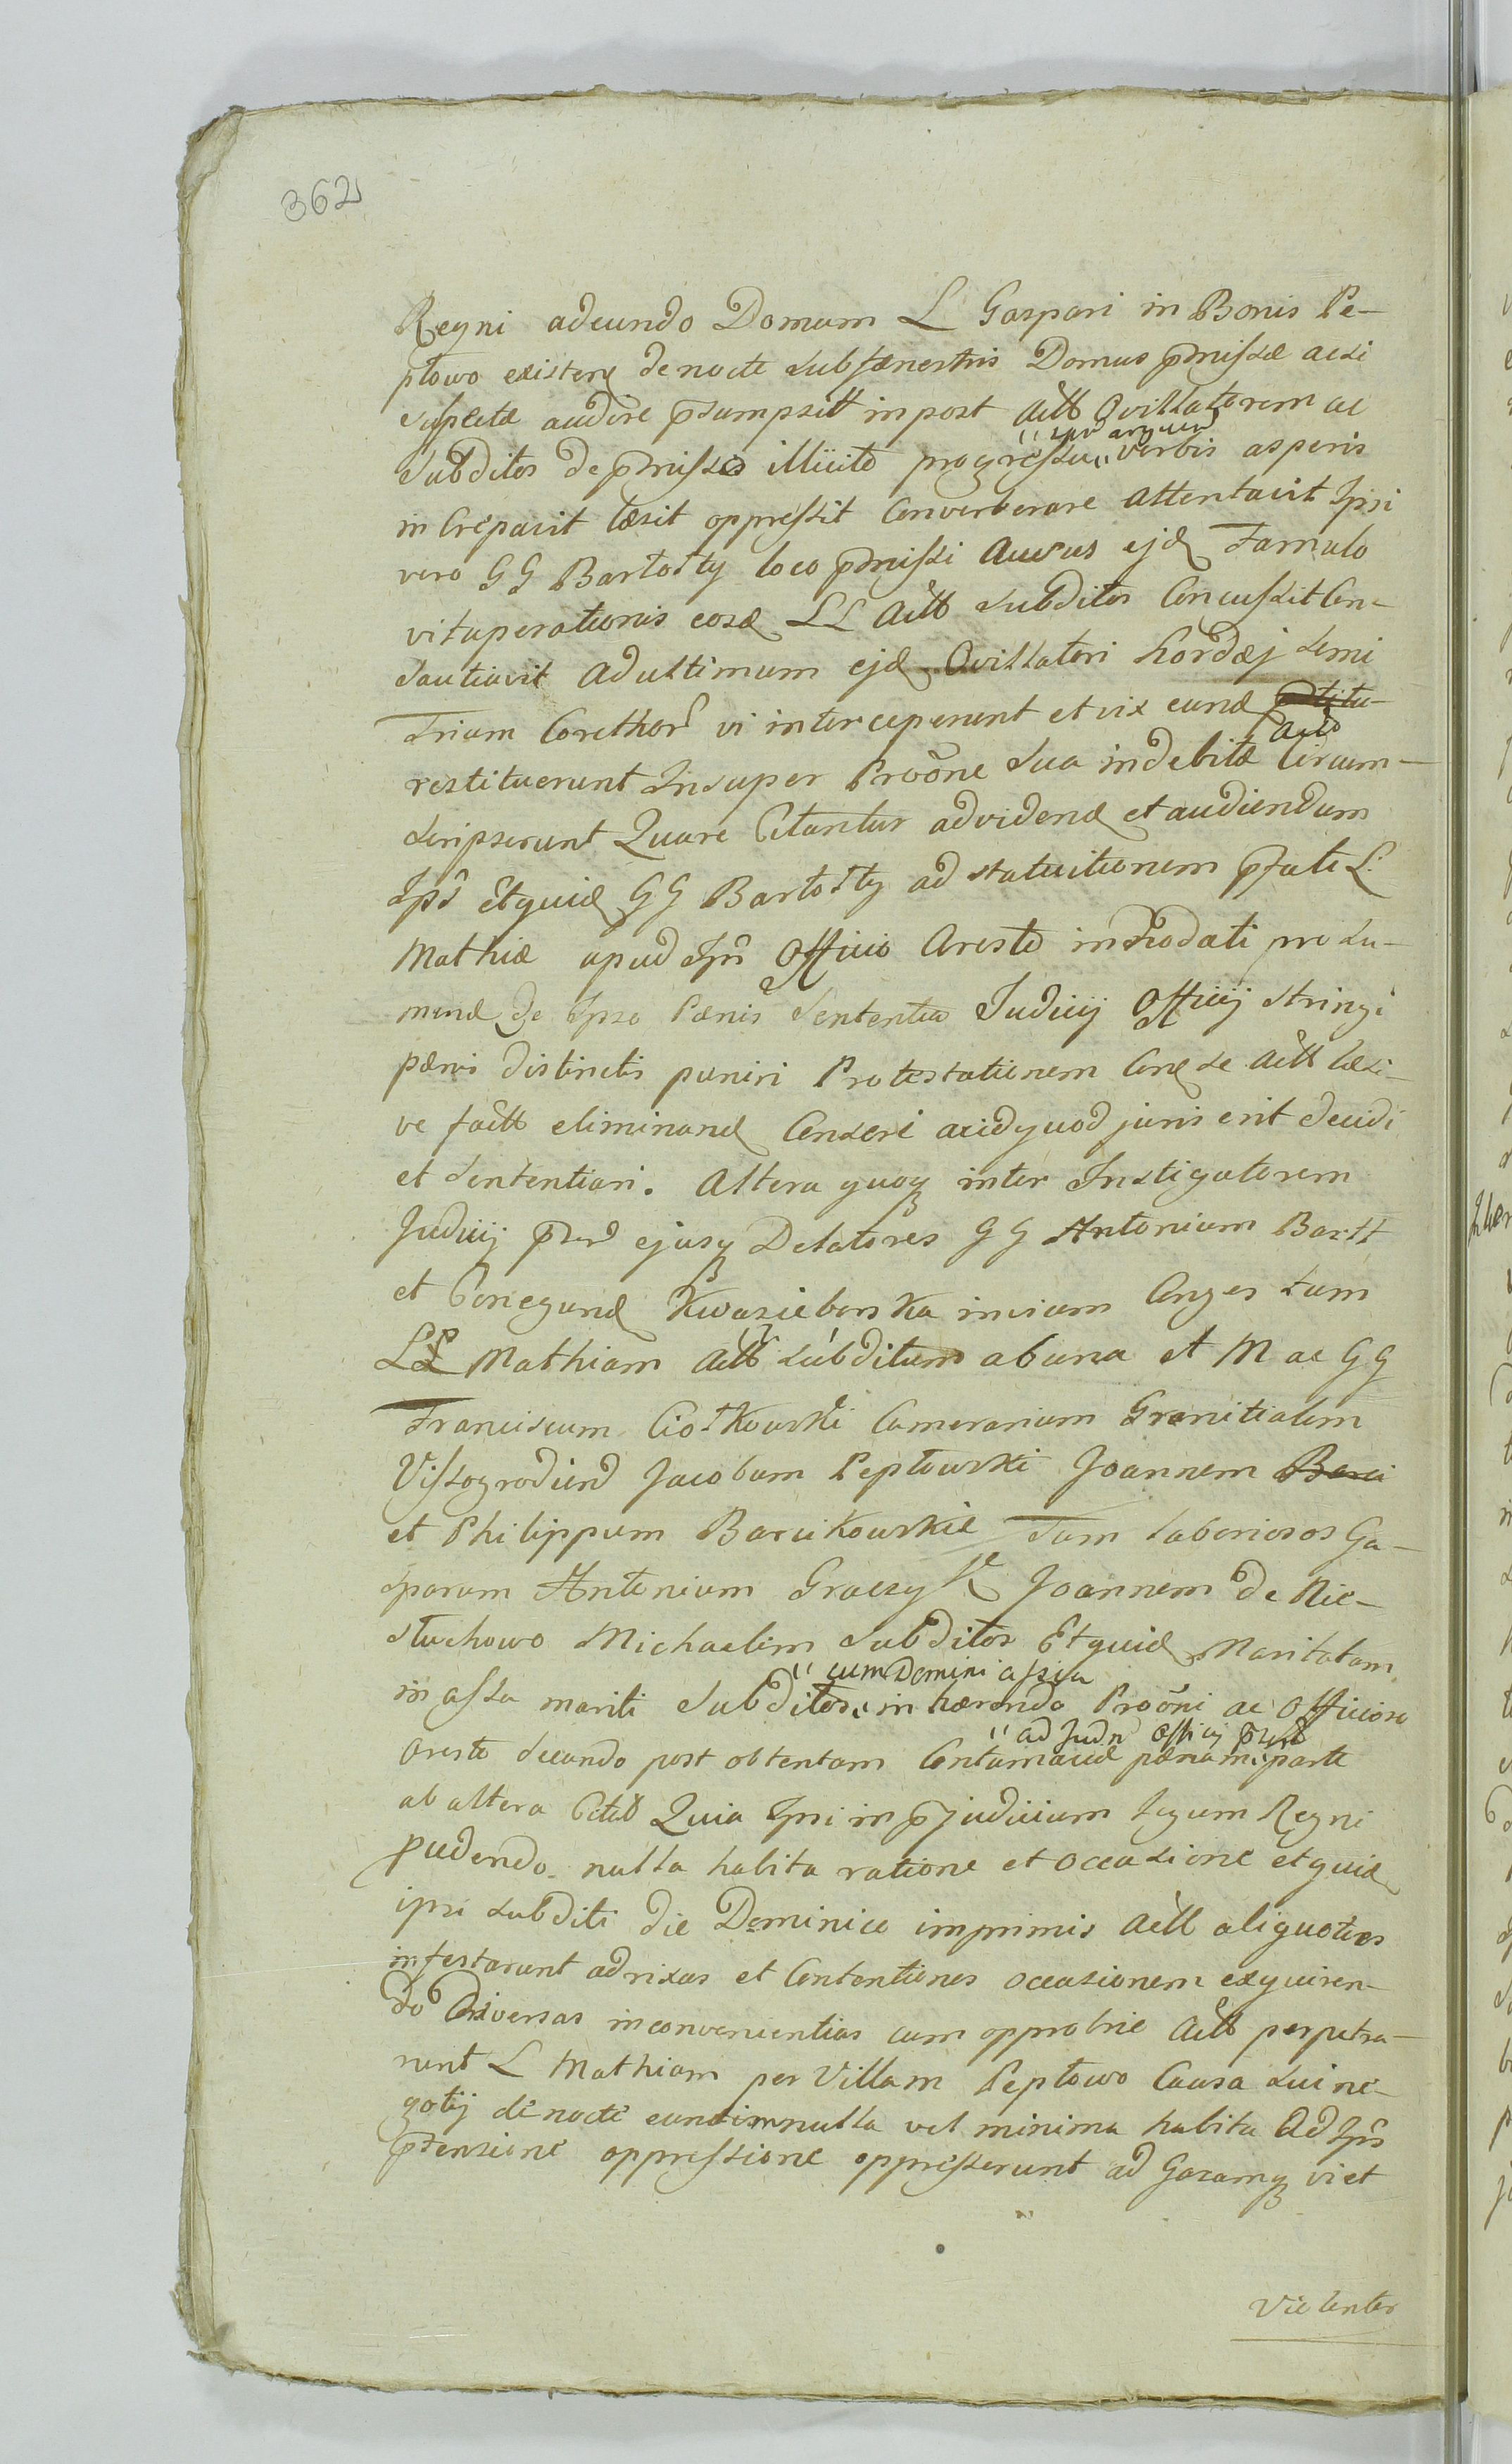 362
Regni adeundo Domum L Gaspari in Bonis Pe-
płowo existen de nocte sub fænestris Domus pmissæ acsi
audire psumpsit inpost Actt Ovillatorem ac
Subditos de pmissis illicito progressu verbis asperis
increpavit læsit oppressit Converberare attentavit Ipsi
vero GG Bartołty loco pmissi ejd Famulo
vituperationis eosd LL Actt Subditos Concussit Con-
Sautiavit ad ultimum ejd Ovillatori hordæj semi
Trium Corethor vi interceperunt et vix eund
restituerunt Insuper Proõne sua indebitæ Circum-
scripserunt Quare Citantur ad vidend et audiendum
Ips Etquid GG Bartołty ad statuitionem pfati L.
Mathiæ apud Ips Officio Aresto inhodati pro su-
mend de Ipso Pænis Sententia Judicij Officij stringi
pænis distinctis puniri Protestationem Cone se Actt læsi-
ve factt eliminand Censeri acidquod juris erit decidi
et sententiari. Altera quoq inter Instigatorem
Judicij pzen ejusq Delatores GG Antonium Bartt
et Conegund Kwasieborska incium Conges tum
LL Mathiam Actt subditum ab una et M ac GG
Franciscum Ciołkowski Camerarium Granitialem
Vissogrodien Jacobum Pepłowski Joannem
et Philippum Barcikowskie Tum laboriosos Ga-
sparum Antonium Graczyk Joannem de Nie-
słuchowo Michaelem subditos Etquid Maritatam
in assa mariti Subditos " cum Domini assia inhærendo Proõni ac Officioso
Aresto secundo post obtentam Contumaciæ pænam " ad Judn Officij pzens parte
ab altera Citat Quia Ipsi in pjudicium legum Regni
pudendo nulla habita ratione et occasione etquid
ipsi subditi die Dominico imprimis Actt aliquoties
infestarunt ad rixas et Contentiones occasionem exquiren-
do Diversas inconvenientias cum opprobrio Actt perpetra-
runt L Mathiam per Villam Pepłowo Causa sui ne-
gotij de nocte eundem nulla vel minima habita ad Ips
ptensione oppressione oppresserunt ad Gazamq vi et
Violenter